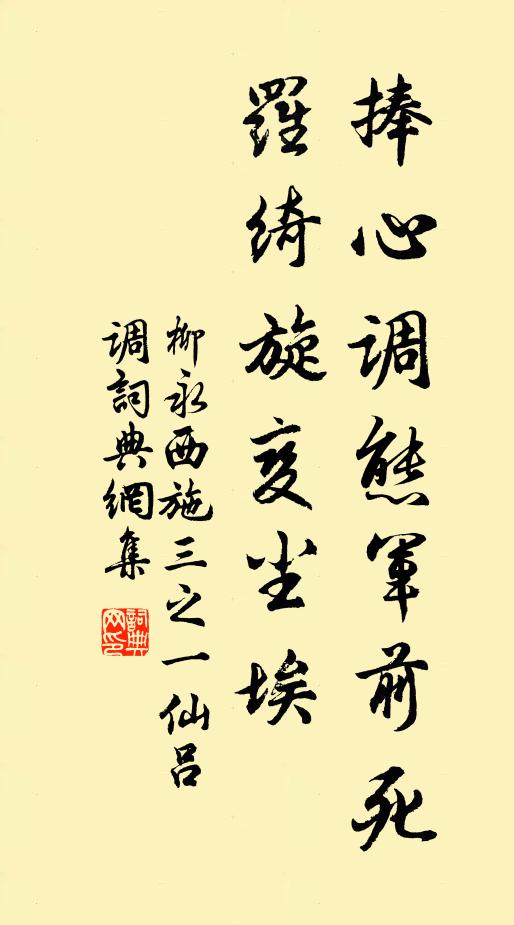 捧心调態軍前死
羅绮旋变尘埃
柳永西施三之一仙吕
调詞典網集
詞典网印